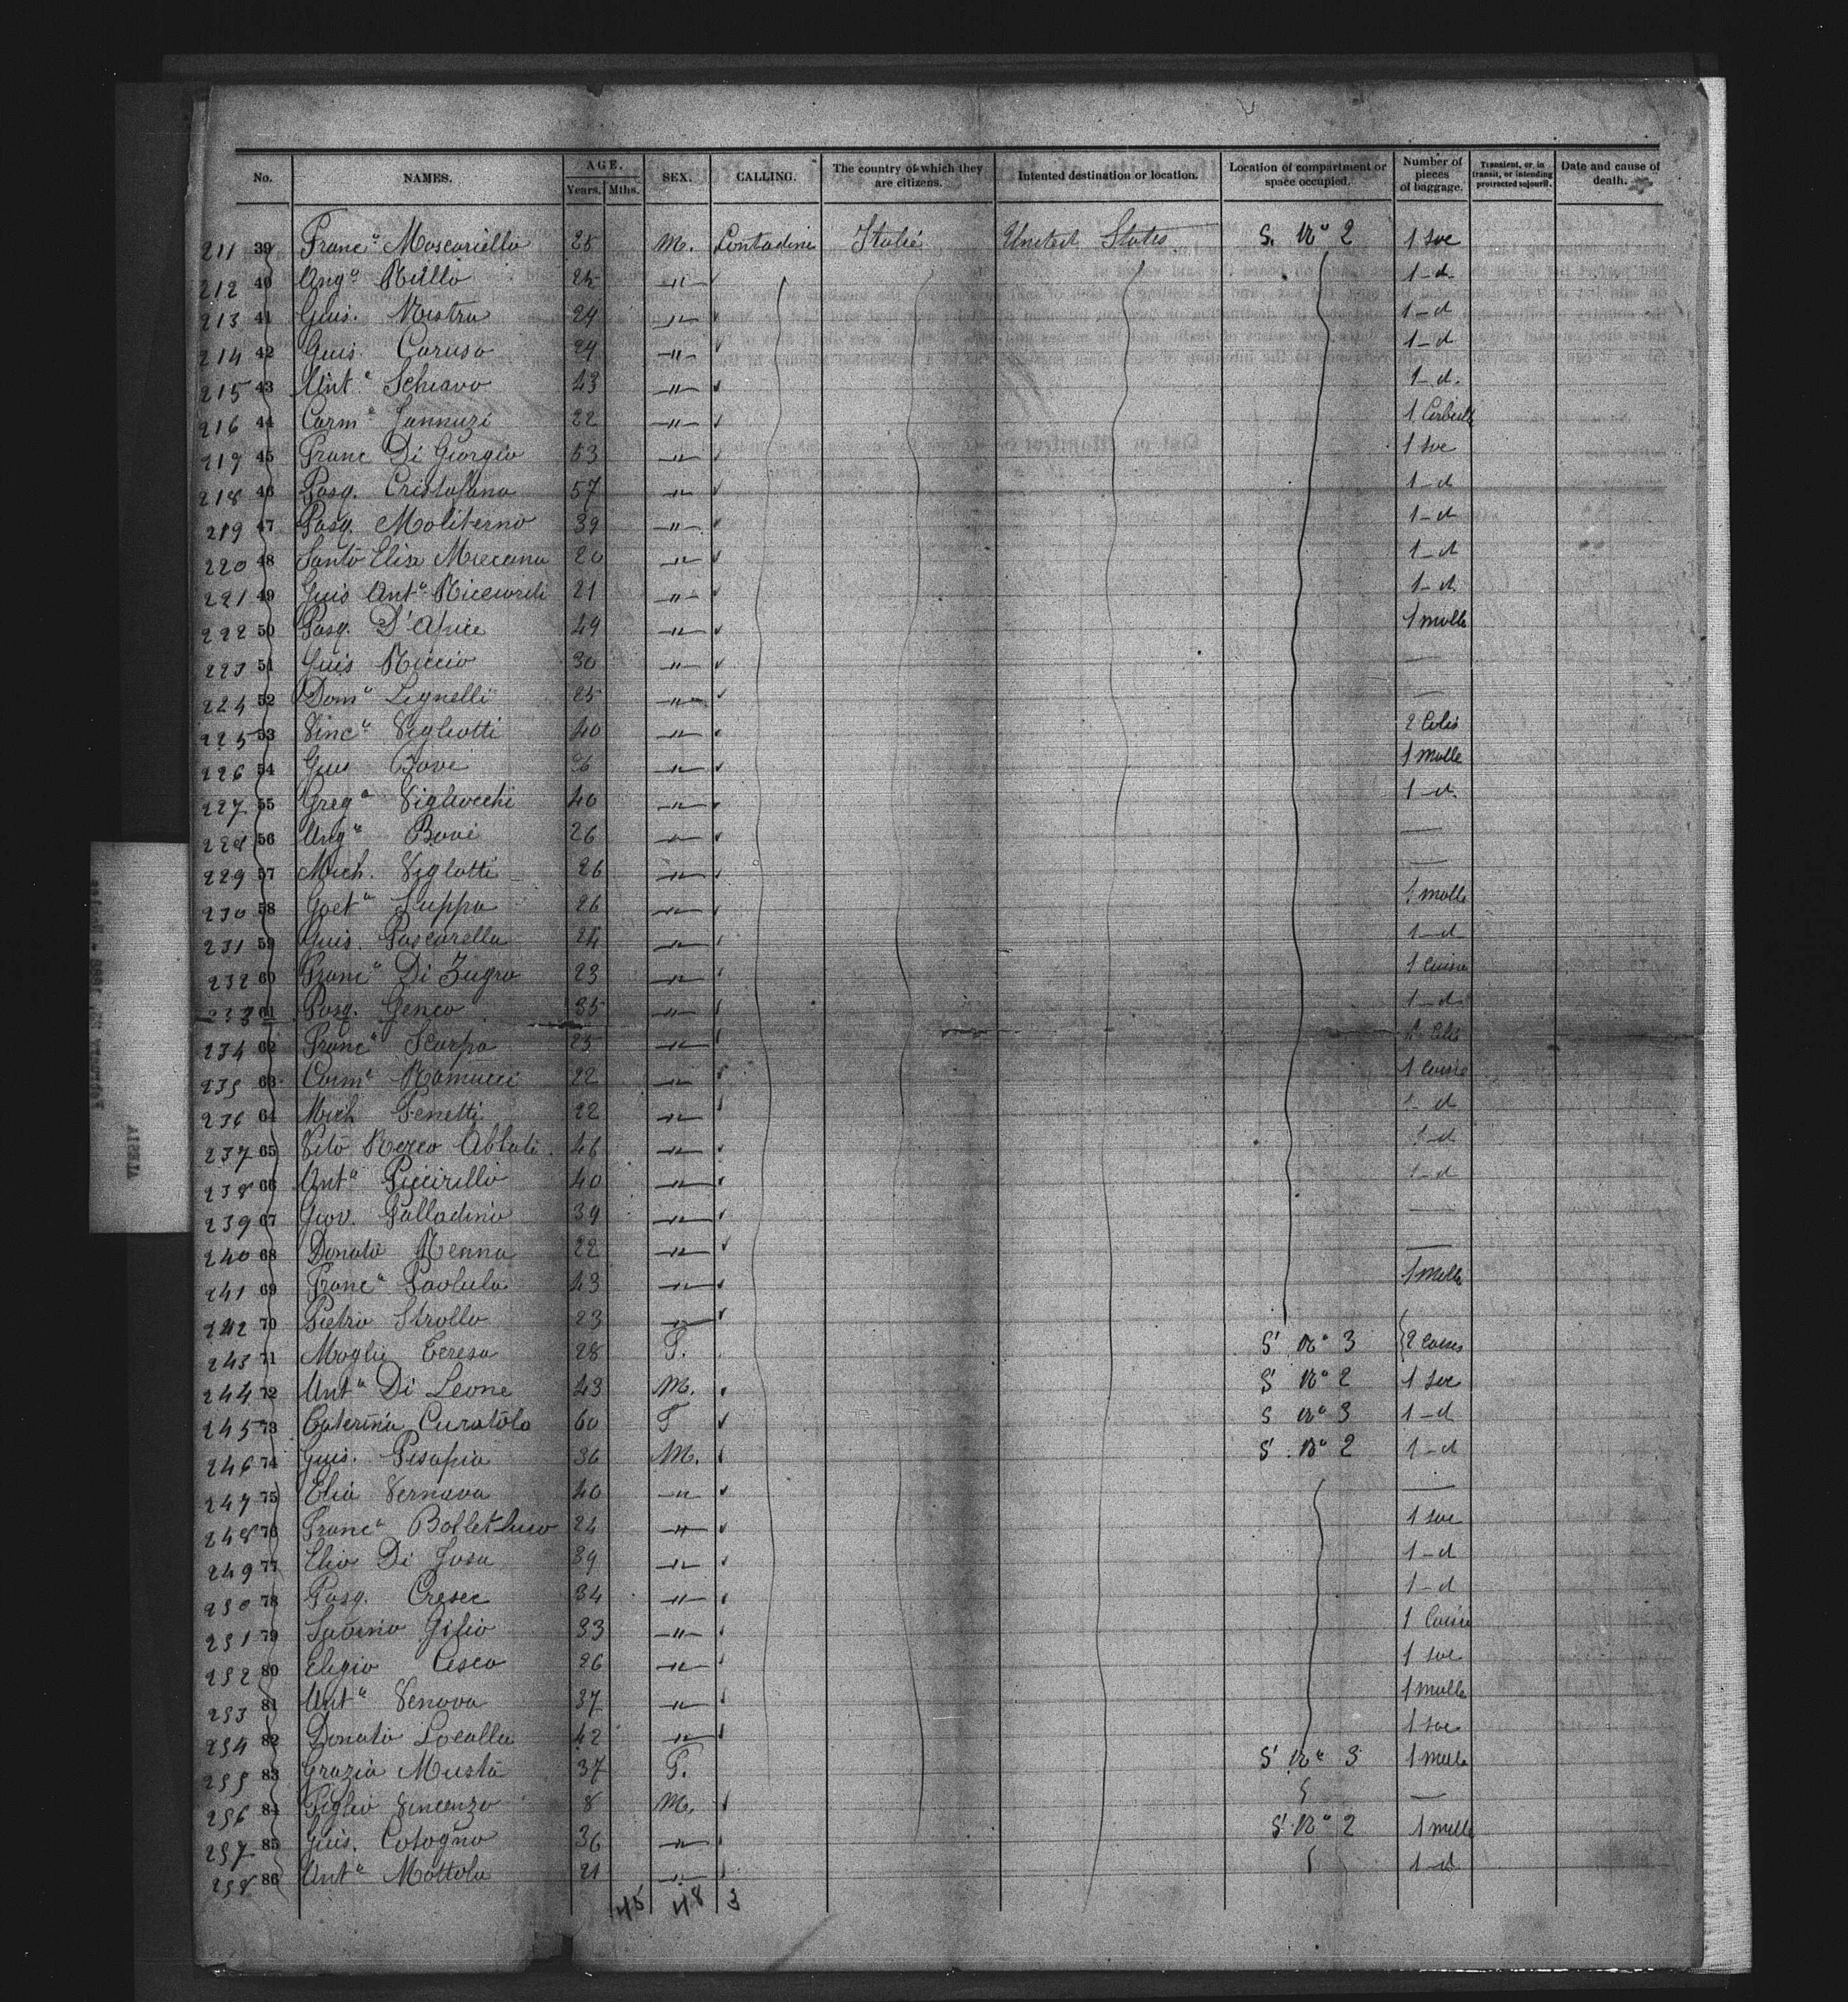 No. NAMES. AGE. Years. Mths. SEX. CALLING. The country of which they are citizens. Intented destination or location. Location of compartment or space occupied. Number of pieces of baggage. Transient, or, in transit, or intending protracted sojourn. Date and cause of death.
211 39 Franc° Moscariello 25 M. Contadini Italie United States S. No 2 1 sac
212 40 Ang° Rullo 24 —"— 1 — d
213 41 Guis. 24 —"— 1 — d
214 42 Guis. Caruso 24 —"— 1 — d
215 43 Ant° Schiavo 43 —"— 1 — d.
216 44 Carm° Jannuzi 22 —"— 1
219 45 Franc Di Giorgio 53 —"— 1 sac
218 46 Pasq. Cristofano 57 —"— 1 — d
219 47 Pasq. Moliterno 39 —"— 1 — d
220 48 Santo Elise 20 —"— 1 — d
221 49 Guis Ant° Ricciardi 21 —"— 1 — d.
222 50 Pasq. D'Apice 49 —"— 1 malle
223 51 Guis Riccio 30 —"— —
224 52 Dom° Lignelli 25 —"— —
225 53 Vinc° Vigliotti 40 —"— 2 Colis
226 54 Guis Bove —"— 1 malle
227 55 Greg° Vigliocchi 40 —"— 1 — d.
228 56 Ang° Bove 26 —"— —
229 57 Mich. Viglotti 26 —"— —
230 58 Gaet° Suppa 26 —"— 1 malle
231 59 Guis. Pascarella 24 —"— 1 — d
232 60 Franc° Di Zugro 23 —"— 1 Caisse
233 61 Pasq. Genco 35 —"— 1 — d
234 62 Franc° Scarpa 25 —"—
235 63 Carm° Ramucci 22 —"— 1 Caisse
236 64 Mich Genetti 22 —"— 1 — d
237 65 Vito Rocco Abbati 46 —"— 1 — d
238 66 Ant° Piccirillo 40 —"— 1 — d
239 67 Giov. Palladino 39 —"— —
240 68 Donato Renna 22 —"— —
241 69 Franc° Paolula 43 —"— 1 Malle
242 70 Pietro Strollo 23 —"—
243 71 Moglie Teresa 28 F. S No 3 2 Caisses
244 72 Ant° Di Leone 43 M. S No 2 1 sac
245 73 Caterina Curatolo 60 F S No 3 1 — d
246 74 Guis. Pisapia 36 M. S. No 2 1 — d
247 75 Elia Vernava 40 —"— —
248 76 Franc° 24 —"— 1 sac
249 77 Elia Di Josa 39 —"— 1 — d
250 78 Pasq. Cresec 34 —"— 1 — d
251 79 Savino Gifio 33 —"— 1 Caisse
252 80 Eligio Cisco 26 —"— 1 sac
253 81 Ant° Venova 37 —"— 1 malle
254 82 Donato Localla 42 —"— 1 sac
255 83 Grazia Musta 37 F. S No 3 1 malle
256 84 Figlio Vincenzo 8 M. —
257 85 Guis. Cotogno 36 —"— S. No 2 1 malle
258 86 Ant° Mottola 21 —"— 1 — d
45 48 3